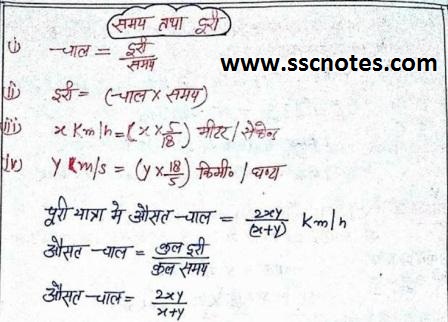 समय तथा दूरी
www.sscnotes.com
i) चाल = दूरी/समय
ii) दूरी = (चाल x समय)
iii) x Km/h = (x x 5/18) मीटर / सेकेन्ड
iv) y Km/s = (y x 18/5) किमी० / घण्टा
पूरी यात्रा मे औसत चाल = 2xy/(x+y) Km/h
औसत चाल = कुल दूरी/कुल समय
औसत चाल = 2xy/x+y